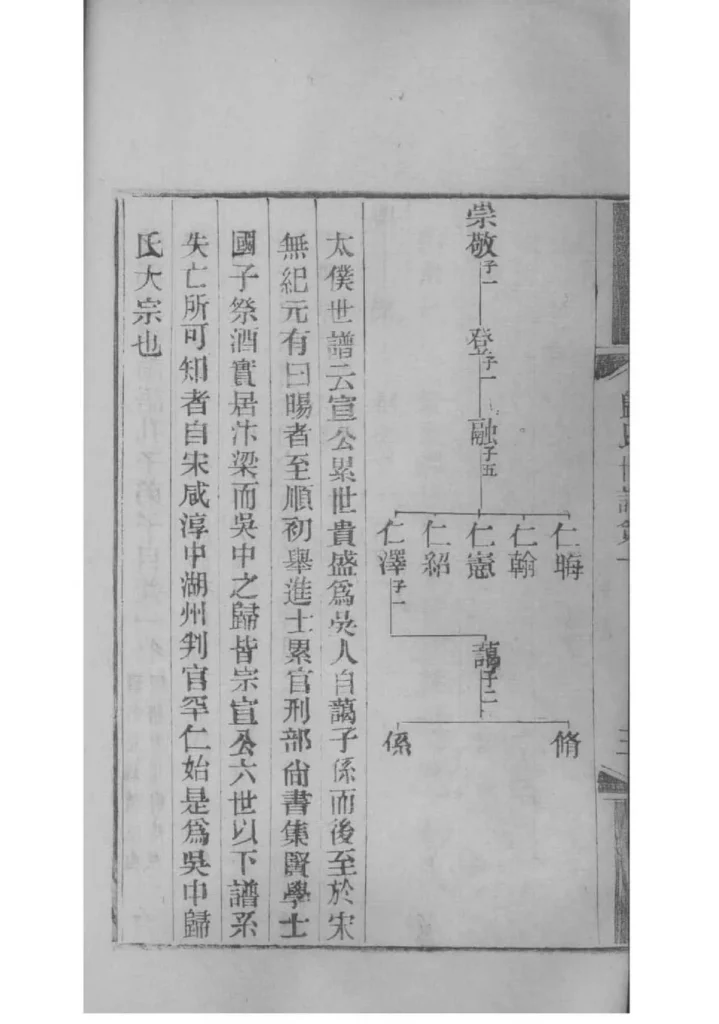 歸氏世譜卷一
三
崇敬子一
登子一
融子五
仁晦
仁翰
仁憲
仁紹
仁澤子一
藹子二
脩
係
太僕世譜云宣公累世貴盛爲吳人自藹子係而後至於宋
無紀元有曰暘者至順初舉進士累官刑部尙書集賢學士
國子祭酒實居汴梁而吳中之歸皆宗宣公六世以下譜系
失亡所可知者自宋咸淳中湖州判官罕仁始是爲吳中歸
氏大宗也